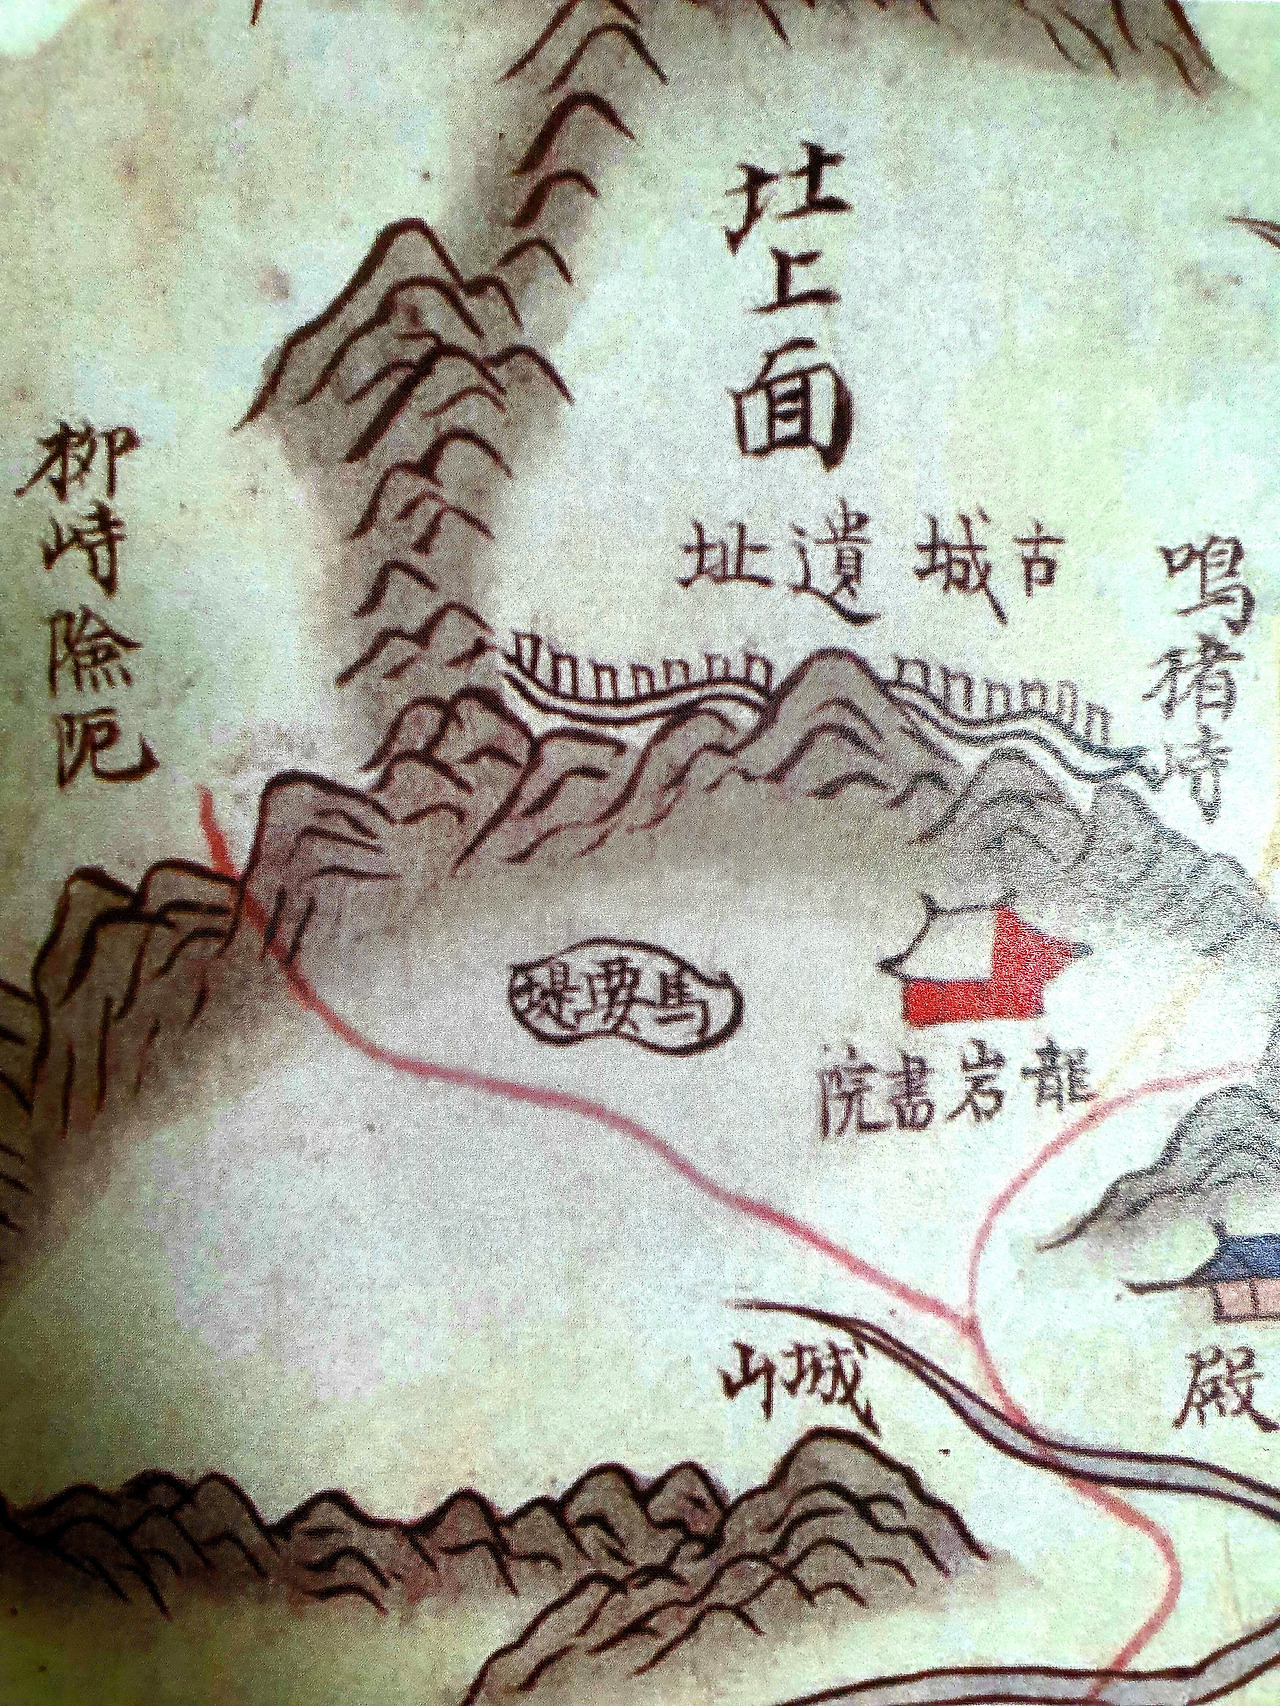 北上面
古城遺址
鳴猪峙
柳峙險阨
馬要堤
龍岩書院
城山
殿